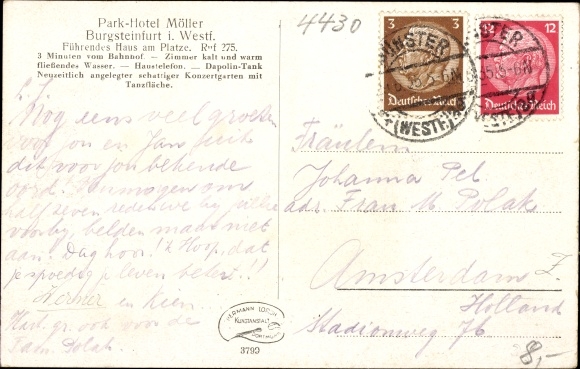 Park-Hotel Möller
Burgsteinfurt i. Westf.
Führendes Haus am Platze. Ruf 275.
3 Minuten vom Bahnhof. — Zimmer kalt und warm
fließendes Wasser. — Haustelefon. — Dapolin-Tank
Neuzeitlich angelegter schattiger Konzertgarten mit
Tanzfläche.
4430
Nog eens veel groeten
voor jou en
dit voor jou bekende
oord. om
half zeven reden we bij jullie
voorbij, belden maar niet
aan. Dag hoor! 'k Hoop, dat
je spoedig leven betert!!
Werner en Kien
Hart. gr. ook voor de
Fam. Polak.
3
Deutsches Reich
12
Deutsches Reich
MÜNSTER
(WESTF.)
Fräulein
Johanna Pel.
adr. Frau M Polak
Amsterdam Z.
Holland
Stadionweg 76
HERMANN LORCH
KUNSTANSTALT
DORTMUND
3799
8,-